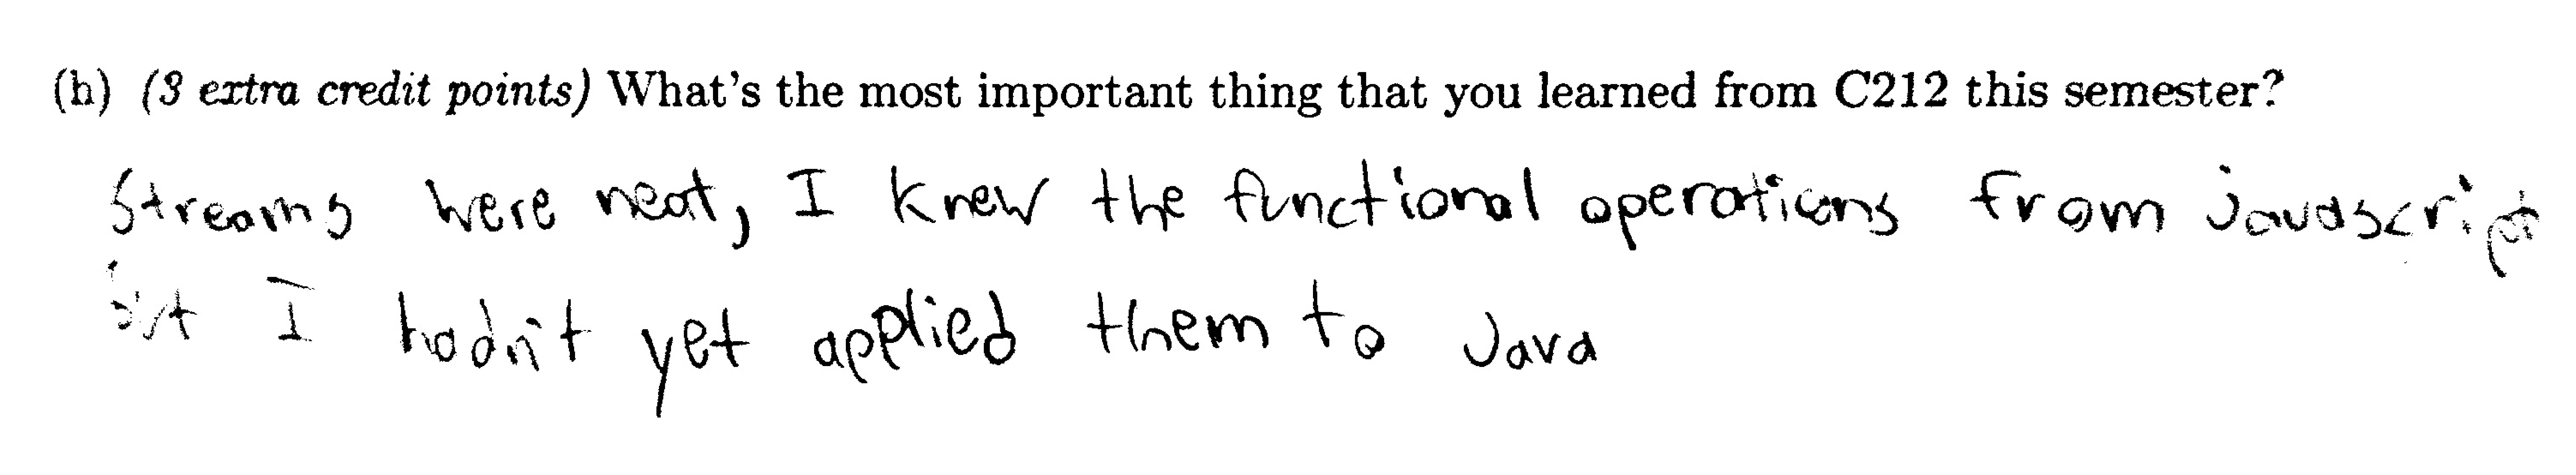 (h) (3 extra credit points) What's the most important thing that you learned from C212 this semester?
Streams were neat, I knew the functional operations from javascript
but I hadn't yet applied them to Java